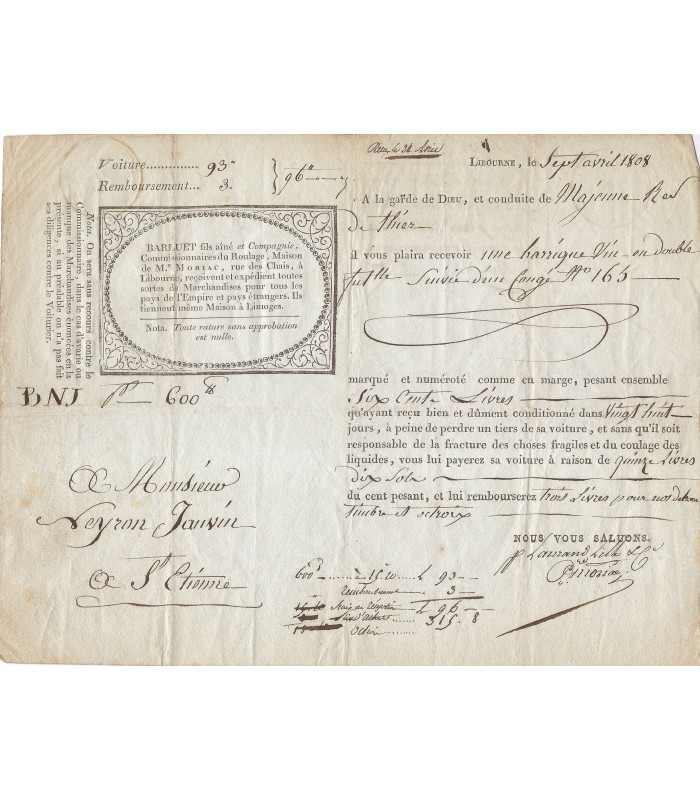 LIBOURNE, le Sept avril 1808
Voiture.............. 93
Remboursement... 3.
96
A la garde de DIEU, et conduite de Majeune
de thier
il vous plaira recevoir une barrique Vin en double
futlle Suivie d'un Congé No 165
BARLUET fils aîné et Compagnie,
Commissionnaires du Roulage, Maison
de M.r MORIAC, rue des Chais, à
Libourne, reçoivent et expédient toutes
sortes de Marchandises pour tous les
pays de l'Empire et pays étrangers. Ils
tiennent même Maison à Limoges.
NOTA. Toute rature sans approbation
est nulle.
Nota. On sera sans recours contre le
Commissionnaire, dans le cas d'avarie ou
manque des Marchandises énoncées en la
présente, si au préalable on n'a pas fait
ses diligences contre le Voiturier.
BNJ 600
marqué et numéroté comme en marge, pesant ensemble
Six Cents Livres
qu'ayant reçu bien et dûment conditionné dans Vingt huit
jours, à peine de perdre un tiers de sa voiture, et sans qu'il soit
responsable de la fracture des choses fragiles et du coulage des
liquides, vous lui payerez sa voiture à raison de quinze Livres
dix Sols
du cent pesant, et lui rembourserez trois Livres pour nos
timbre et octrois
NOUS VOUS SALUONS.
A Monsieur
Neyron Janvin
A St Etienne
600 à 15.10 L 93
Remboursement 3
L 96
315. 8